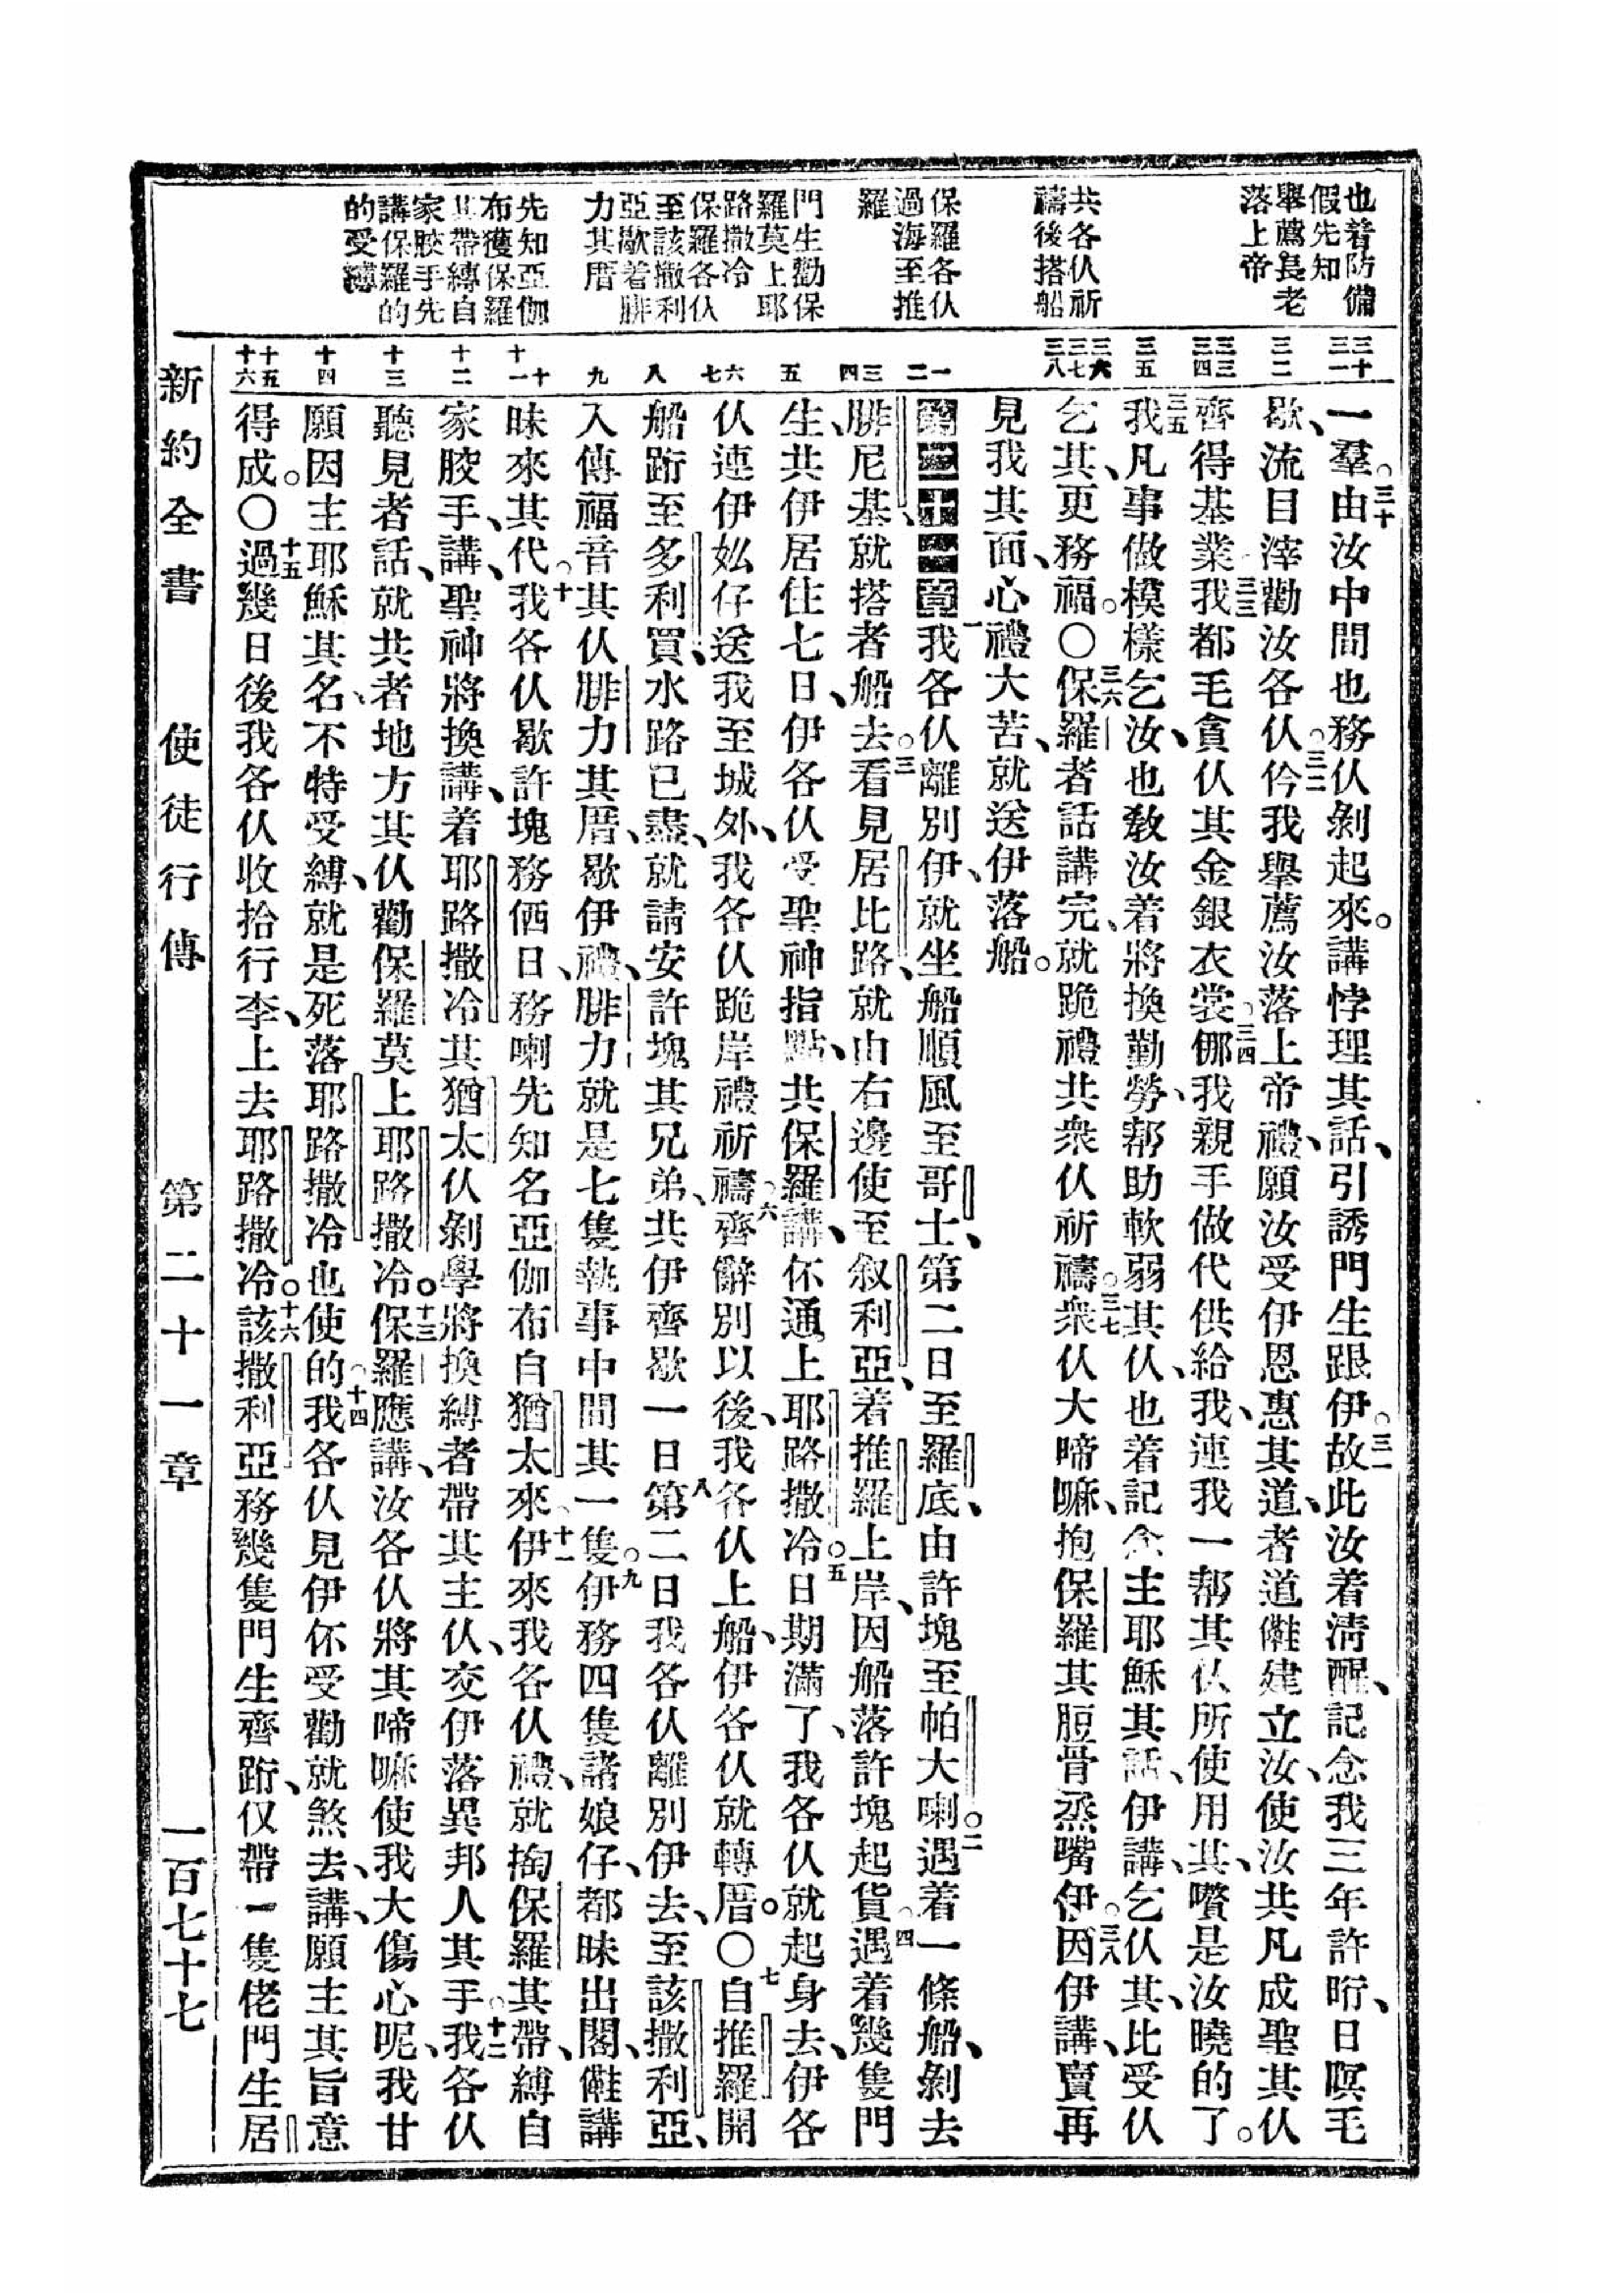 也着防備
假先知
舉薦長老
落上帝
共各仫祈
禱後搭船
保羅各仫
過海至推
羅
門生勸保
羅莫上耶
路撒冷
保羅各仫
至該撒利
亞歇着腓
力其厝
先知亞伽
布獲保羅
其帶縛自
家骹手先
講保羅的
的受縛
三十 三一
三二
三三 三四
三五
三六 三七 三八
一 二
三 四
五
六 七
八
九
十 十一
十二
十三
十四
十五 十六
一羣。三十由汝中間也務仫剝起來。講悖理其話、引誘門生跟伊。三一故此汝着淸醒、記念我三年許晍、日暝毛
歇、流目滓勸汝各仫。三二仱我舉薦汝落上帝禮、願汝受伊恩惠其道、者道儺建立汝、使汝共凡成聖其仫
齊得基業。三三我都毛貪仫其金銀衣裳。三四挪我親手做代供給我、連我一幫其仫所使用其、嚽是汝曉的了。
三五我凡事做模樣乞汝、也敎汝着將換勤勞、幫助軟弱其仫、也着記念主耶穌其話、伊講、乞仫其、比受仫
乞其、更務福。〇三六保羅者話講完、就跪禮共衆仫祈禱。三七衆仫大啼嘛、抱保羅其脰骨烝嘴伊。三八因伊講、賣再
見我其面、心禮大苦、就送伊落船。
第二十一章一我各仫離別伊、就坐船順風至哥士、第二日至羅底、由許塊至帕大喇。二遇着一條船、剝去
腓尼基、就搭者船去。三看見居比路、就由右邊使至叙利亞、着推羅上岸、因船落許塊起貨。四遇着幾隻門
生、共伊居住七日、伊各仫受聖神指點、共保羅講、伓通上耶路撒冷。五日期滿了、我各仫就起身去、伊各
仫連伊妐仔送我至城外、我各仫跪岸禮祈禱。六齊辭別以後、我各仫上船、伊各仫就轉厝。〇七自推羅開
船跕至多利買、水路已盡、就請安許塊其兄弟、共伊齊歇一日。八第二日我各仫離別伊去、至該撒利亞、
入傳福音其仫腓力其厝、歇伊禮、腓力就是七隻執事中間其一隻。九伊務四隻諸娘仔、都昧出閣、儺講
昧來其代。十我各仫歇許塊務伵日、務喇先知名亞伽布自猶太來。十一伊來我各仫禮、就掏保羅其帶、縛自
家骹手、講、聖神將換講、着耶路撒冷其猶太仫剝學將換縛者帶其主仫、交伊落異邦人其手。十二我各仫
聽見者話、就共者地方其仫勸保羅莫上耶路撒冷。十三保羅應講、汝各仫將其啼嘛使我大傷心呢、我甘
願因主耶穌其名、不特受縛、就是死落耶路撒冷也使的。十四我各仫見伊伓受勸就煞去、講、願主其旨意
得成。〇十五過幾日後我各仫收拾行李、上去耶路撒冷。十六該撒利亞務幾隻門生齊跕、仅帶一隻佬門生居
新約全書　使徒行傳　第二十一章　一百七十七